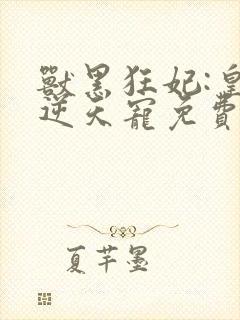 獸黑狂妃:皇
逆天寵免費
夏芊墨